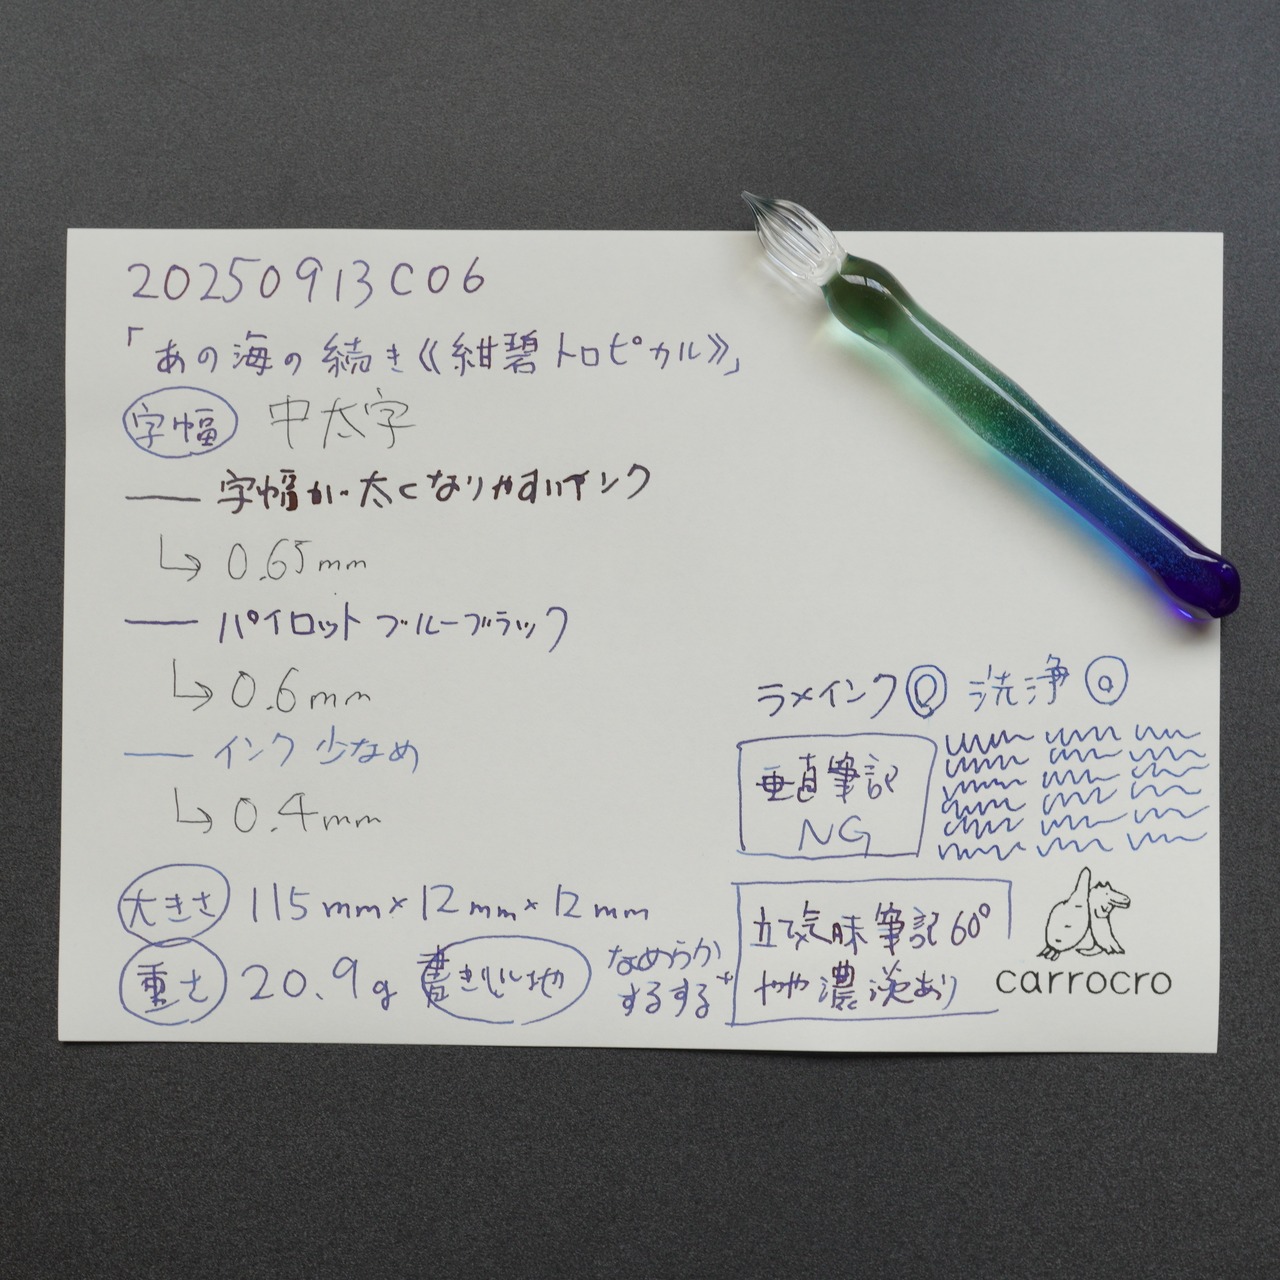 20250913C06
「あの海の続き《紺碧トロピカル》」
字幅 中太字
字幅が太くなりやすいインク
0.65mm
パイロットブルーブラック
0.6mm
インク少なめ
0.4mm
大きさ 115mm×12mm×12mm
重さ 20.9g 書き心地 なめらか
するする+
ラメインク◎ 洗浄◎
垂直筆記
NG
立て気味筆記60°
やや濃淡あり
carrocro